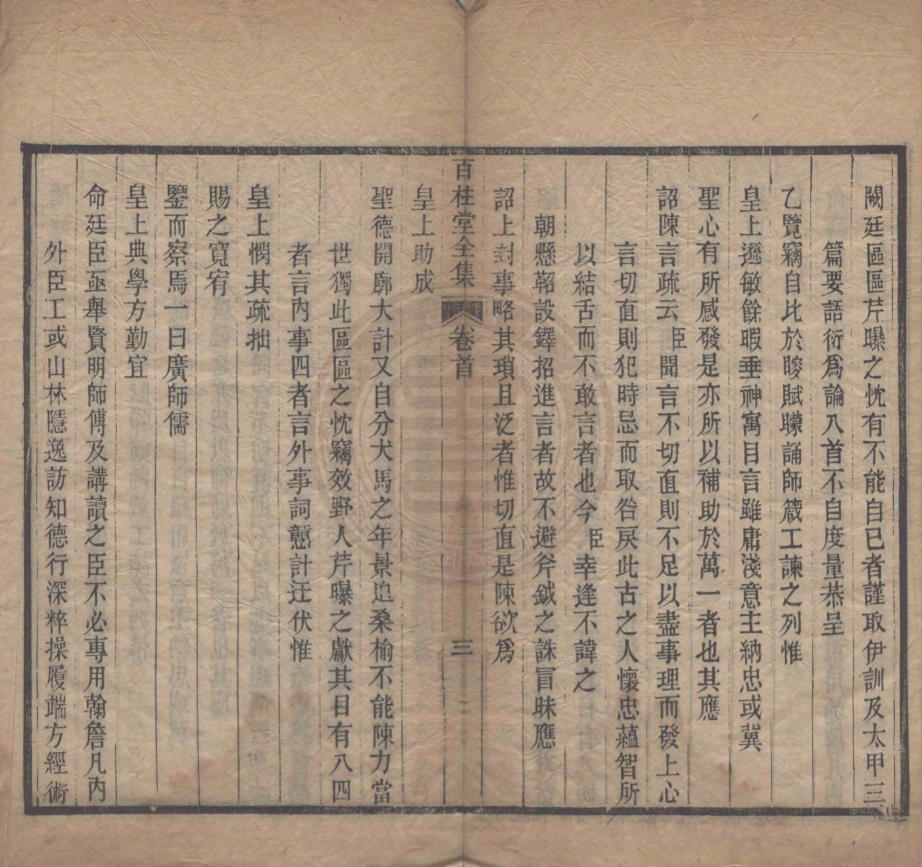 闕廷區區芹曝之忱有不能自已者謹取伊訓及太甲三
篇要語衍爲論八首不自度量恭呈
乙覽竊自比於瞍賦矇誦師箴工諫之列惟
皇上遜敏餘暇垂神寓目言雖庸淺意主納忠或冀
聖心有所感發是亦所以補助於萬一者也其應
詔陳言疏云臣聞言不切直則不足以盡事理而發上心
言切直則犯時忌而取咎戾此古之人懷忠蘊智所
以結舌而不敢言者也今臣幸逢不諱之
朝懸鞀設鐸招進言者故不避斧鉞之誅冒昧應
詔上封事略其瑣且泛者惟切直是陳欲爲
百柱堂全集
卷首
三
皇上助成
聖德開廓大計又自分犬馬之年景迫桑榆不能陳力當
世獨此區區之忱竊效野人芹曝之獻其目有八四
者言內事四者言外事詞戇計迂伏惟
皇上憫其疏拙
賜之寬宥
鑒而察焉一曰廣師儒
皇上典學方勤宜
命廷臣亟舉賢明師傅及講讀之臣不必專用翰詹凡內
外臣工或山林隱逸訪知德行深粹操履端方經術